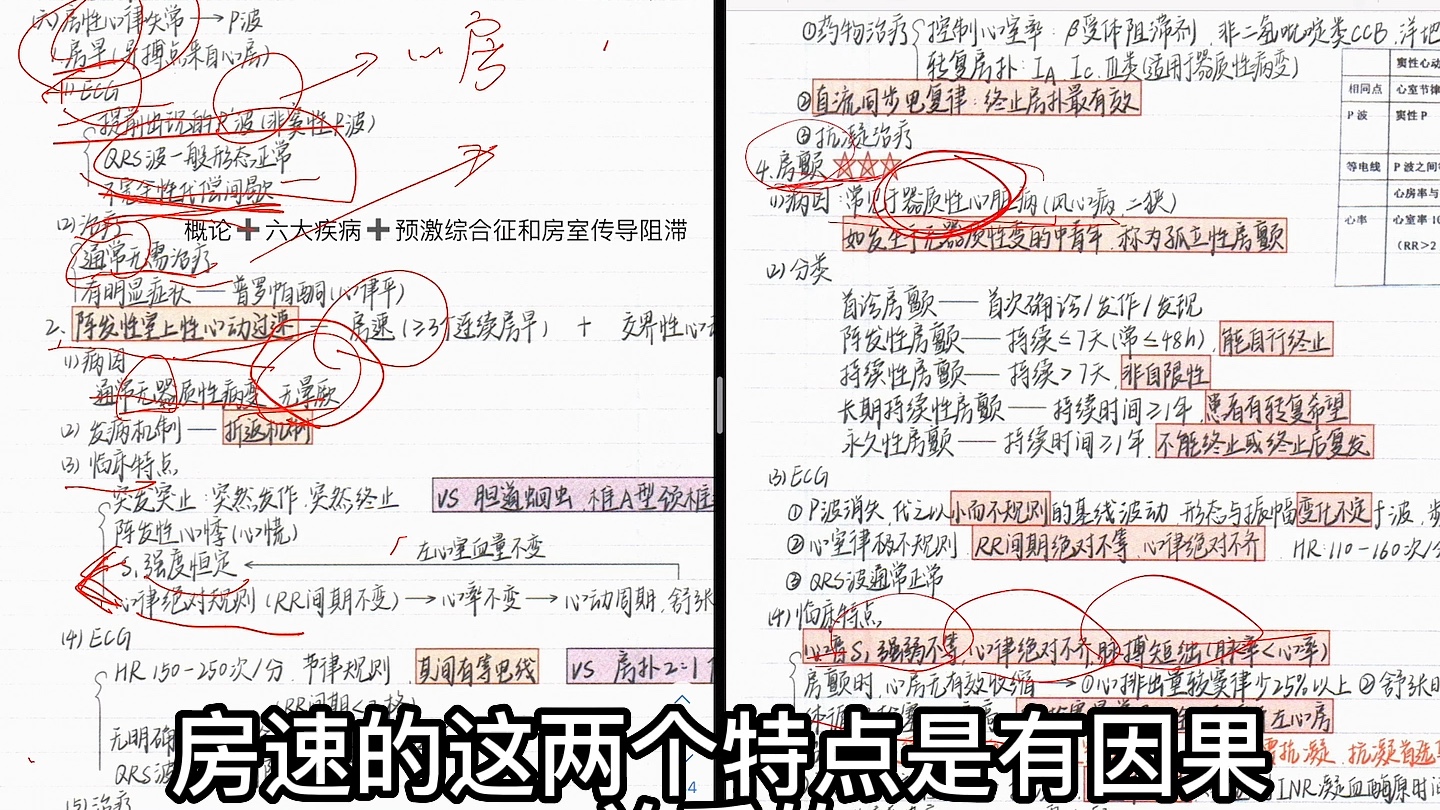 (六)房性心律失常→P波
1.房早(早搏点来自心房)
(1)ECG
提前出现的P'波(非窦性P波)
QRS波一般形态正常
不完全性代偿间歇
(2)治疗
通常无需治疗
有明显症状——普罗帕酮(心律平)
2.阵发性室上性心动过速 = 房速(≥3个连续房早) + 交界性心
(1)病因
通常无器质性病变 无晕厥
(2)发病机制—折返机制
(3)临床特点
突发突止:突然发作,突然终止 VS 胆道蛔虫
阵发性心悸(心慌)
左心室血量不变
S₁强度恒定
心律绝对规则(RR间期不变)→心率不变→心动周期,舒张
(4)ECG
HR 150-250次/分 节律规则 其间有等电线 VS 房扑2:1
QRS波
(5)治疗
心房
概论➕六大疾病➕预激综合征和房室传导阻滞
①药物治疗 控制心室率:β受体阻滞剂 非二氢吡啶类CCB,洋地
转复房扑:ⅠA、Ⅰc、Ⅲ类(适用于器质性病变)
②直流同步电复律:终止房扑最有效
③抗凝治疗
4.房颤☆☆☆
(1)病因:常见于器质性心脏病(风心病,二狭)
如发生于无器质性变的中青年,称为孤立性房颤
(2)分类
首诊房颤——首次确诊/发作/发现
阵发性房颤——持续≤7天(常≤48h),能自行终止
持续性房颤——持续>7天,非自限性
长期持续性房颤——持续时间≥1年,患者有转复希望
永久性房颤——持续时间≥1年,不能终止或终止后复发
(3)ECG
①P波消失,代之以小而不规则的基线波动,形态与振幅变化不定f波,频
②心室律极不规则 RR间期绝对不等,心律绝对不齐 HR:110-160次/分
③QRS波通常正常
(4)临床特点
心音S₁强弱不等,心律绝对不齐,脉搏短绌(脉率<心率)
房颤时,心房无有效收缩→①心排出量较窦律少25%以上 ②舒张
左心房
抗凝,抗凝首选
INR凝血酶原时间
窦性心动
相同点 心室节律
P波 窦性P
等电线 P波之间
心房率与
心率 心室率10
(RR>2
房速的这两个特点是有因果
4